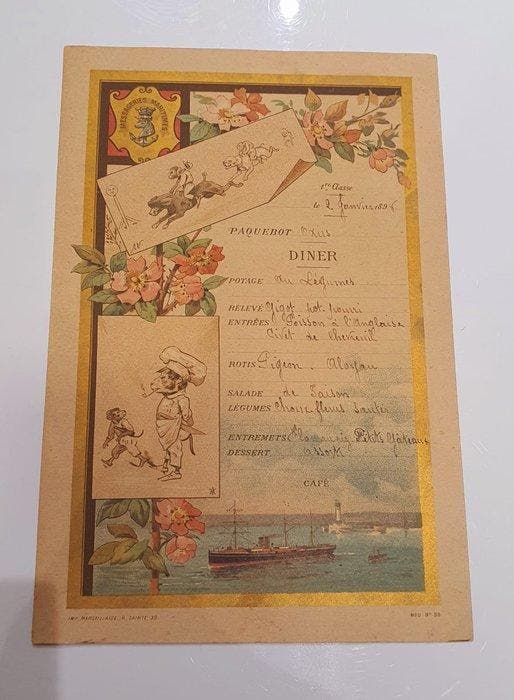 MESSAGERIES MARITIMES
1re Classe
le 2 Janvier 189
PAQUEBOT
DINER
POTAGE aux Légumes
RELEVÉ Gigot pot-pourri
ENTRÉES Poisson à l'anglaise
Civet de Chevreuil
ROTIS Pigeon - Aloyau
SALADE de Saison
LÉGUMES Chouxfleurs sautés
ENTREMETS Petits Gâteaux
DESSERT Assorti
CAFÉ
IMP. MARSEILLAISE, R. SAINTE, 39.
MOD. No